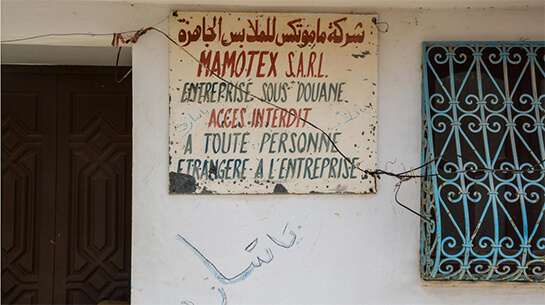 شركة ماموتكس للملابس الجاهزة
MAMOTEX S.A.R.L.
ENTREPRISE SOUS DOUANE.
ACCES INTERDIT
A TOUTE PERSONNE
ETRANGERE A L'ENTREPRISE